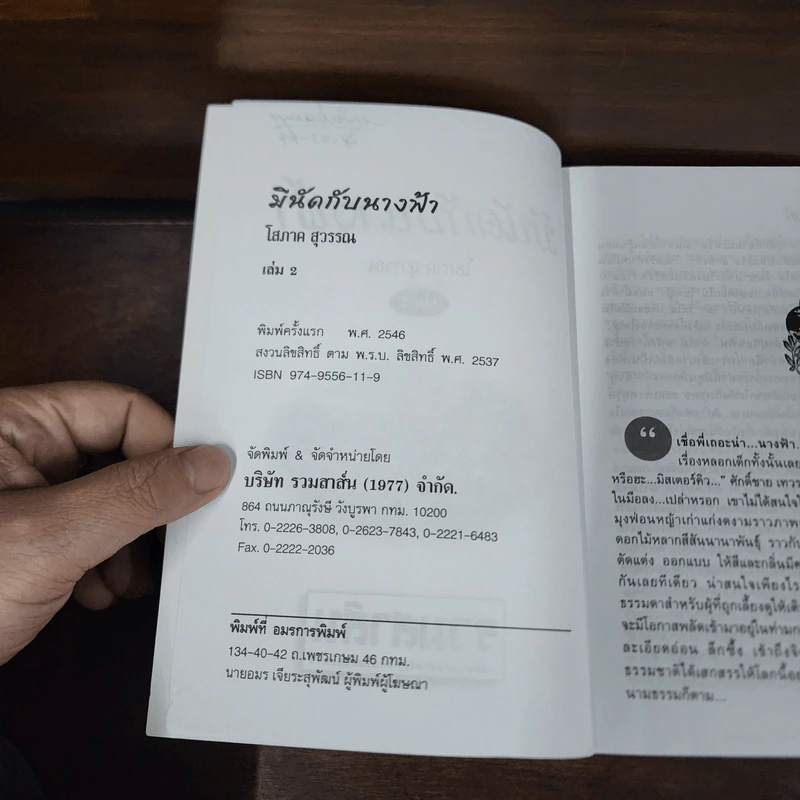 มีนัดกับนางฟ้า
โสภาค สุวรรณ
เล่ม 2
พิมพ์ครั้งแรก พ.ศ. 2546
สงวนลิขสิทธิ์ ตาม พ.ร.บ. ลิขสิทธิ์ พ.ศ. 2537
ISBN 974-9556-11-9
จัดพิมพ์ & จัดจำหน่ายโดย
บริษัท รวมสาส์น (1977) จำกัด.
864 ถนนภาณุรังษี วังบูรพา กทม. 10200
โทร. 0-2226-3808, 0-2623-7843, 0-2221-6483
Fax. 0-2222-2036
พิมพ์ที่ อมรการพิมพ์
134-40-42 ถ.เพชรเกษม 46 กทม.
นายอมร เจียระสุพัฒน์ ผู้พิมพ์ผู้โฆษณา
“
เชื่อพี่เถอะน่า...นางฟ้า
เรื่องหลอกเด็กทั้งนั้นเลย
หรือฮะ...มิสเตอร์คิว...” ศักดิ์ชาย เทวร
ในมือลง...เปล่าหรอก เขาไม่ได้สนใจใ
มุงฟ่อนหญ้าเก่าแก่งดงามราวภาพ
ดอกไม้หลากสีสันนานาพันธุ์ ราวกับ
ตัดแต่ง ออกแบบ ให้สีและกลิ่นมีค
กันเลยทีเดียว น่าสนใจเพียงไร
ธรรมดาสำหรับผู้ที่ถูกเลี้ยงดูให้เติ
จะมีโอกาสพลัดเข้ามาอยู่ในท่ามก
ละเอียดอ่อน ลึกซึ้ง เข้าถึงจิ
ธรรมชาติได้เสกสรรให้โลกนี้อย
นามธรรมก็ตาม...